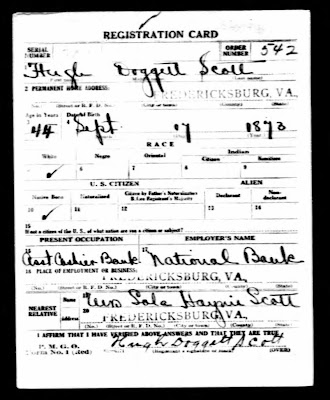 REGISTRATION CARD
SERIAL NUMBER ORDER NUMBER 542
Hugh Doggett Scott
2 PERMANENT HOME ADDRESS:
FREDERICKSBURG, VA.
(No.) (Street or R. F. D. No.) (City or town) (County) (State)
Age in Years Date of Birth
44 Sept. 17 1873
RACE
White Negro Oriental Indian
Citizen Noncitizen
5 6 7 8 9
U. S. CITIZEN ALIEN
Native Born Naturalized Citizen by Father's Naturalization Before Registrant's Majority Declarant Non-declarant
10 11 12 13 14
15
If not a citizen of the U. S., of what nation are you a citizen or subject?
PRESENT OCCUPATION EMPLOYER'S NAME
16 17
Asst Cashier Bank National Bank
18 PLACE OF EMPLOYMENT OR BUSINESS:
FREDERICKSBURG, VA.
(No.) (Street or R. F. D. No.) (City or town) (County) (State)
NEAREST RELATIVE Name 19 Mrs Sale Haynie Scott
Address 20 FREDERICKSBURG, VA.
(No.) (Street or R. F. D. No.) (City or town) (County) (State)
I AFFIRM THAT I HAVE VERIFIED ABOVE ANSWERS AND THAT THEY ARE TRUE
P. M. G. O. Hugh Doggett Scott
Form No. 1 (Red) (Registrant's signature or mark) (OVER)